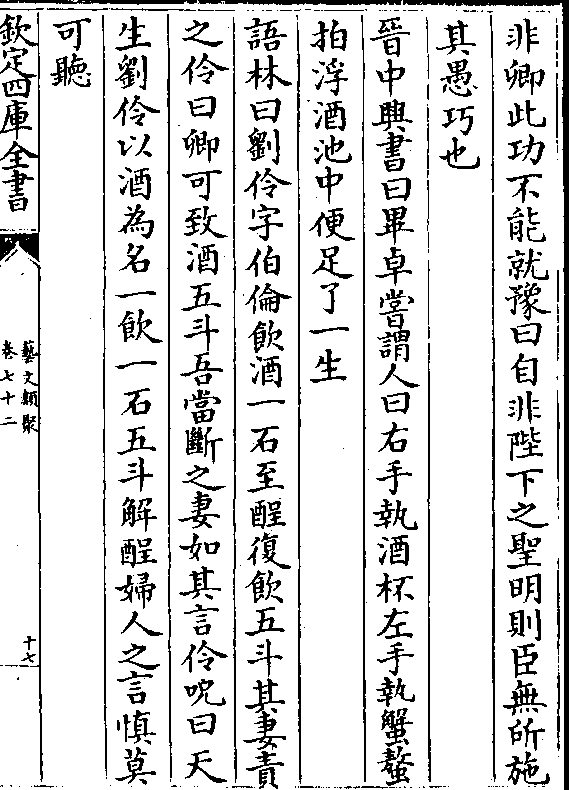 非卿此功不能就豫曰自非陛下之聖明則臣無所施
其愚巧也
晉中興書曰畢卓嘗謂人曰右手執酒杯左手執蟹螯
拍浮酒池中便足了一生
語林曰劉伶字伯倫飲酒一石至酲復飲五斗其妻責
之伶曰卿可致酒五斗吾當斷之妻如其言伶呪曰天
生劉伶以酒為名一飲一石五斗解酲婦人之言慎莫
可聽
欽定四庫全書
藝文類聚
卷七十二
十七